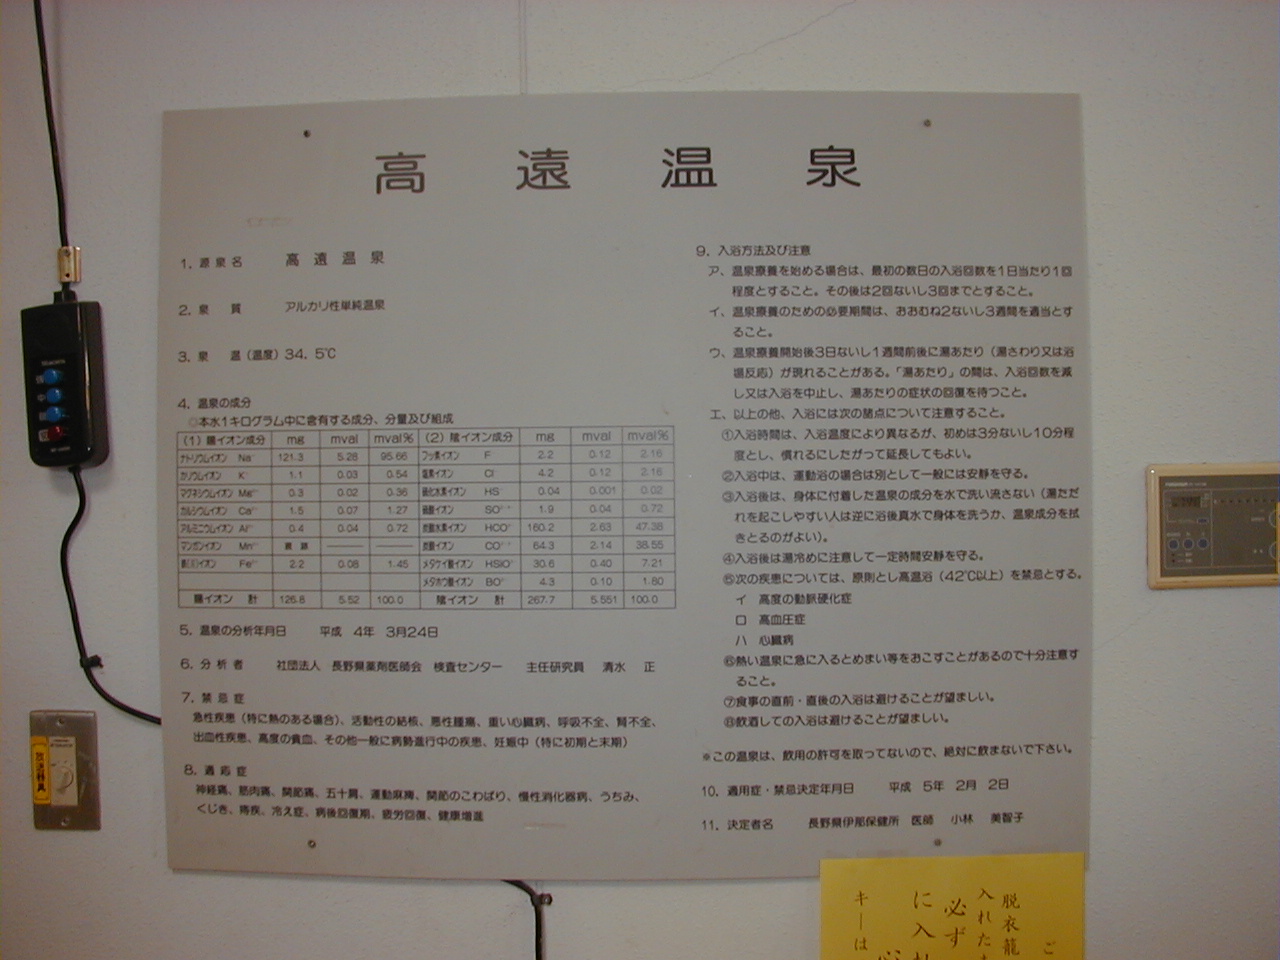 高遠温泉
1. 源泉名 高遠温泉
2. 泉 質 アルカリ性単純温泉
3. 泉 温（温度）34.5℃
4. 温泉の成分
○本水1キログラム中に含有する成分、分量及び組成
(1) 陽イオン成分 mg mval mval% (2) 陰イオン成分 mg mval mval%
ナトリウムイオン Na 121.3 5.28 95.66 フッ素イオン F 2.2 0.12 2.16
カリウムイオン K 1.1 0.03 0.54 塩素イオン Cl 4.2 0.12 2.16
マグネシウムイオン Mg 0.3 0.02 0.36 硫化水素イオン HS 0.04 0.001 0.02
カルシウムイオン Ca 1.5 0.07 1.27 硫酸イオン SO 1.9 0.04 0.72
アルミニウムイオン Al 0.4 0.04 0.72 炭酸水素イオン HCO 160.2 2.63 47.38
マンガンイオン Mn 痕跡 ―― ―― 炭酸イオン CO 64.3 2.14 38.55
鉄(Ⅱ)イオン Fe 2.2 0.08 1.45 メタケイ酸イオン HSiO 30.6 0.40 7.21
メタホウ酸イオン BO 4.3 0.10 1.80
陽イオン 計 126.8 5.52 100.0 陰イオン 計 267.7 5.551 100.0
5. 温泉の分析年月日 平成 4年 3月24日
6. 分析者 社団法人 長野県薬剤医師会 検査センター 主任研究員 清水 正
7. 禁忌症
急性疾患（特に熱のある場合）、活動性の結核、悪性腫瘍、重い心臓病、呼吸不全、腎不全、
出血性疾患、高度の貧血、その他一般に病勢進行中の疾患、妊娠中（特に初期と末期）
8. 適応症
神経痛、筋肉痛、関節痛、五十肩、運動麻痺、関節のこわばり、慢性消化器病、うちみ、
くじき、痔疾、冷え症、病後回復期、疲労回復、健康増進
9. 入浴方法及び注意
ア、温泉療養を始める場合は、最初の数日の入浴回数を1日当たり1回
程度とすること。その後は2回ないし3回までとすること。
イ、温泉療養のための必要期間は、おおむね2ないし3週間を適当とす
ること。
ウ、温泉療養開始後3日ないし1週間前後に湯あたり（湯さわり又は浴
場反応）が現れることがある。「湯あたり」の間は、入浴回数を減
し又は入浴を中止し、湯あたりの症状の回復を待つこと。
エ、以上の他、入浴には次の諸点について注意すること。
①入浴時間は、入浴温度により異なるが、初めは3分ないし10分程
度とし、慣れるにしたがって延長してもよい。
②入浴中は、運動浴の場合は別として一般には安静を守る。
③入浴後は、身体に付着した温泉の成分を水で洗い流さない（湯ただ
れを起こしやすい人は逆に浴後真水で身体を洗うか、温泉成分を拭
きとるのがよい）。
④入浴後は湯冷めに注意して一定時間安静を守る。
⑤次の疾患については、原則とし高温浴（42℃以上）を禁忌とする。
イ 高度の動脈硬化症
ロ 高血圧症
ハ 心臓病
⑥熱い温泉に急に入るとめまい等をおこすことがあるので十分注意す
ること。
⑦食事の直前・直後の入浴は避けることが望ましい。
⑧飲酒しての入浴は避けることが望ましい。
※この温泉は、飲用の許可を取ってないので、絶対に飲まないで下さい。
10. 適用症・禁忌決定年月日 平成 5年 2月 2日
11. 決定者名 長野県伊那保健所 医師 小林 美智子
ご
脱衣籠
入れた
必ず
に入れ
キーは